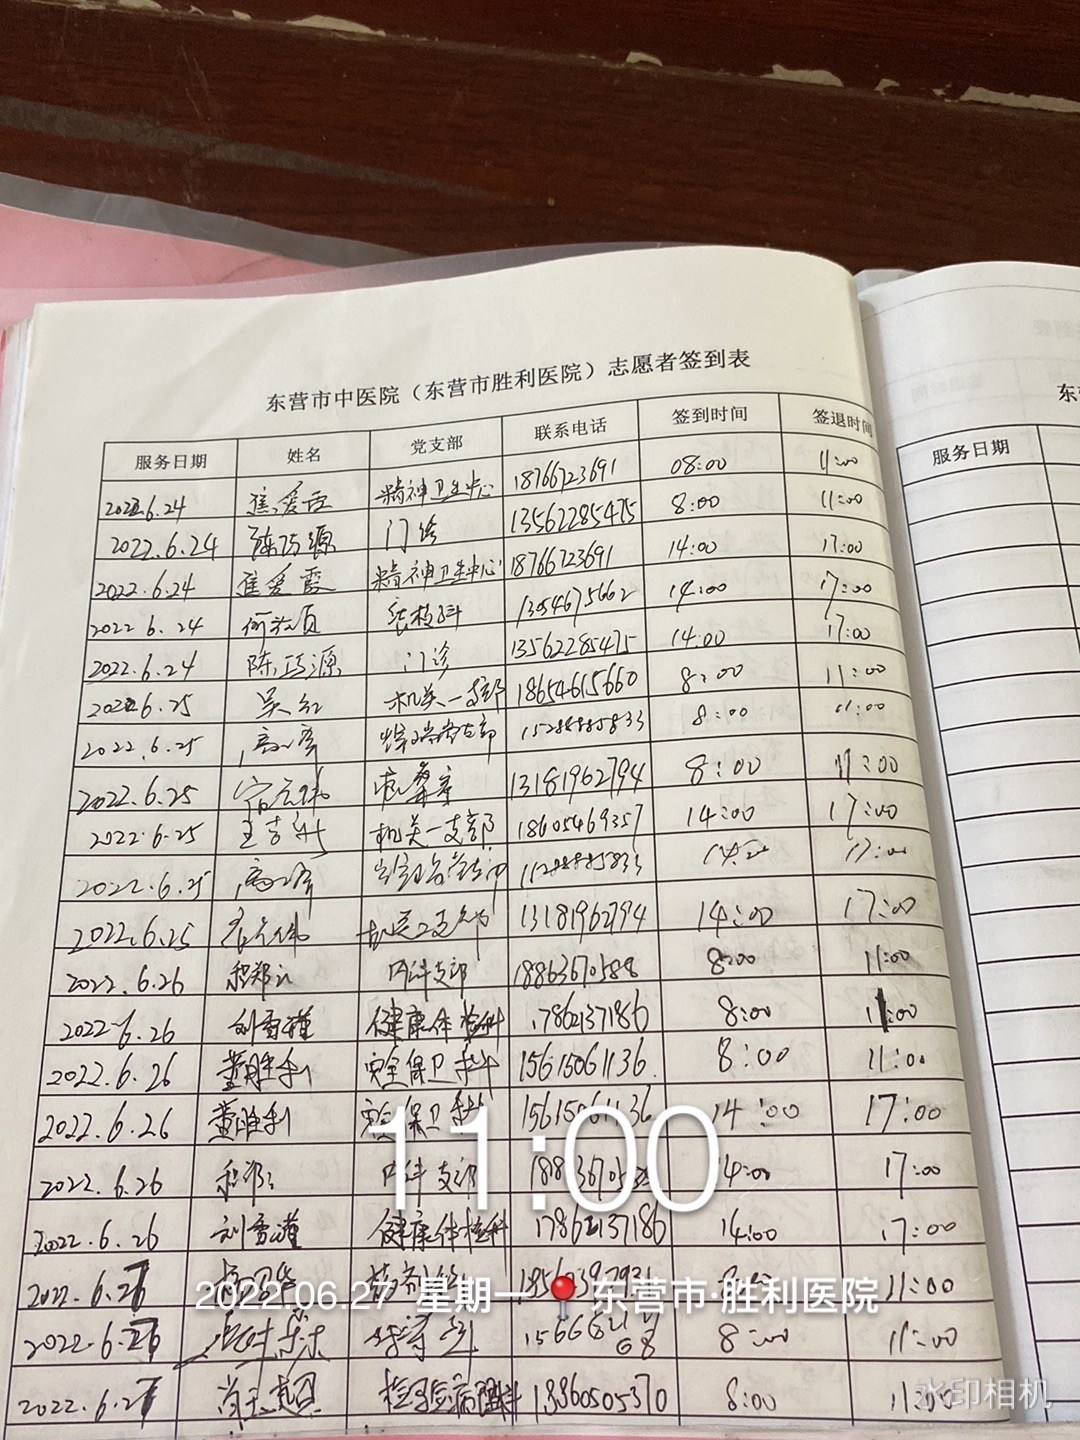 东营市中医院（东营市胜利医院）志愿者签到表
服务日期 姓名 党支部 联系电话 签到时间 签退时间
2022.6.24 精神卫生中心 18766723691 08:00 11:00
2022.6.24 门诊 13562285475 8:00 11:00
2022.6.24 崔爱霞 精神卫生中心 18766723691 14:00 17:00
2022 6.24 13054675662 14:00 17:00
2022.6.24 陈巧源 门诊 13562285475 14:00 17:00
2022 6.25 吴红 机关一支部 18654615660 8:00 11:00
2022.6.25 8:00 11:00
2022.6.25 13181962794 8:00 11:00
2022.6.25 机关一支部 18605469357 14:00 17:00
2022.6.25 14:00 17:00
2022.6.25 13181962794 14:00 17:00
2022.6.26 内科支部 8:00 11:00
2022.6.26 健康体检科 17862137186 8:00 11:00
2022.6.26 董胜利 安全保卫科 15615061136 8:00 11:00
2022.6.26 董胜利 安全保卫科 15615061136 14:00 17:00
2022.6.26 内科支部 14:00 17:00
2022.6.26 健康体检科 17862137186 14:00 17:00
2022.6.27 11:00
2022.6.27 8:00 11:00
2022.6.27 18860505370 8:00 11:00
服务日期
东
11:00
2022.06.27 星期一 东营市·胜利医院
水印相机